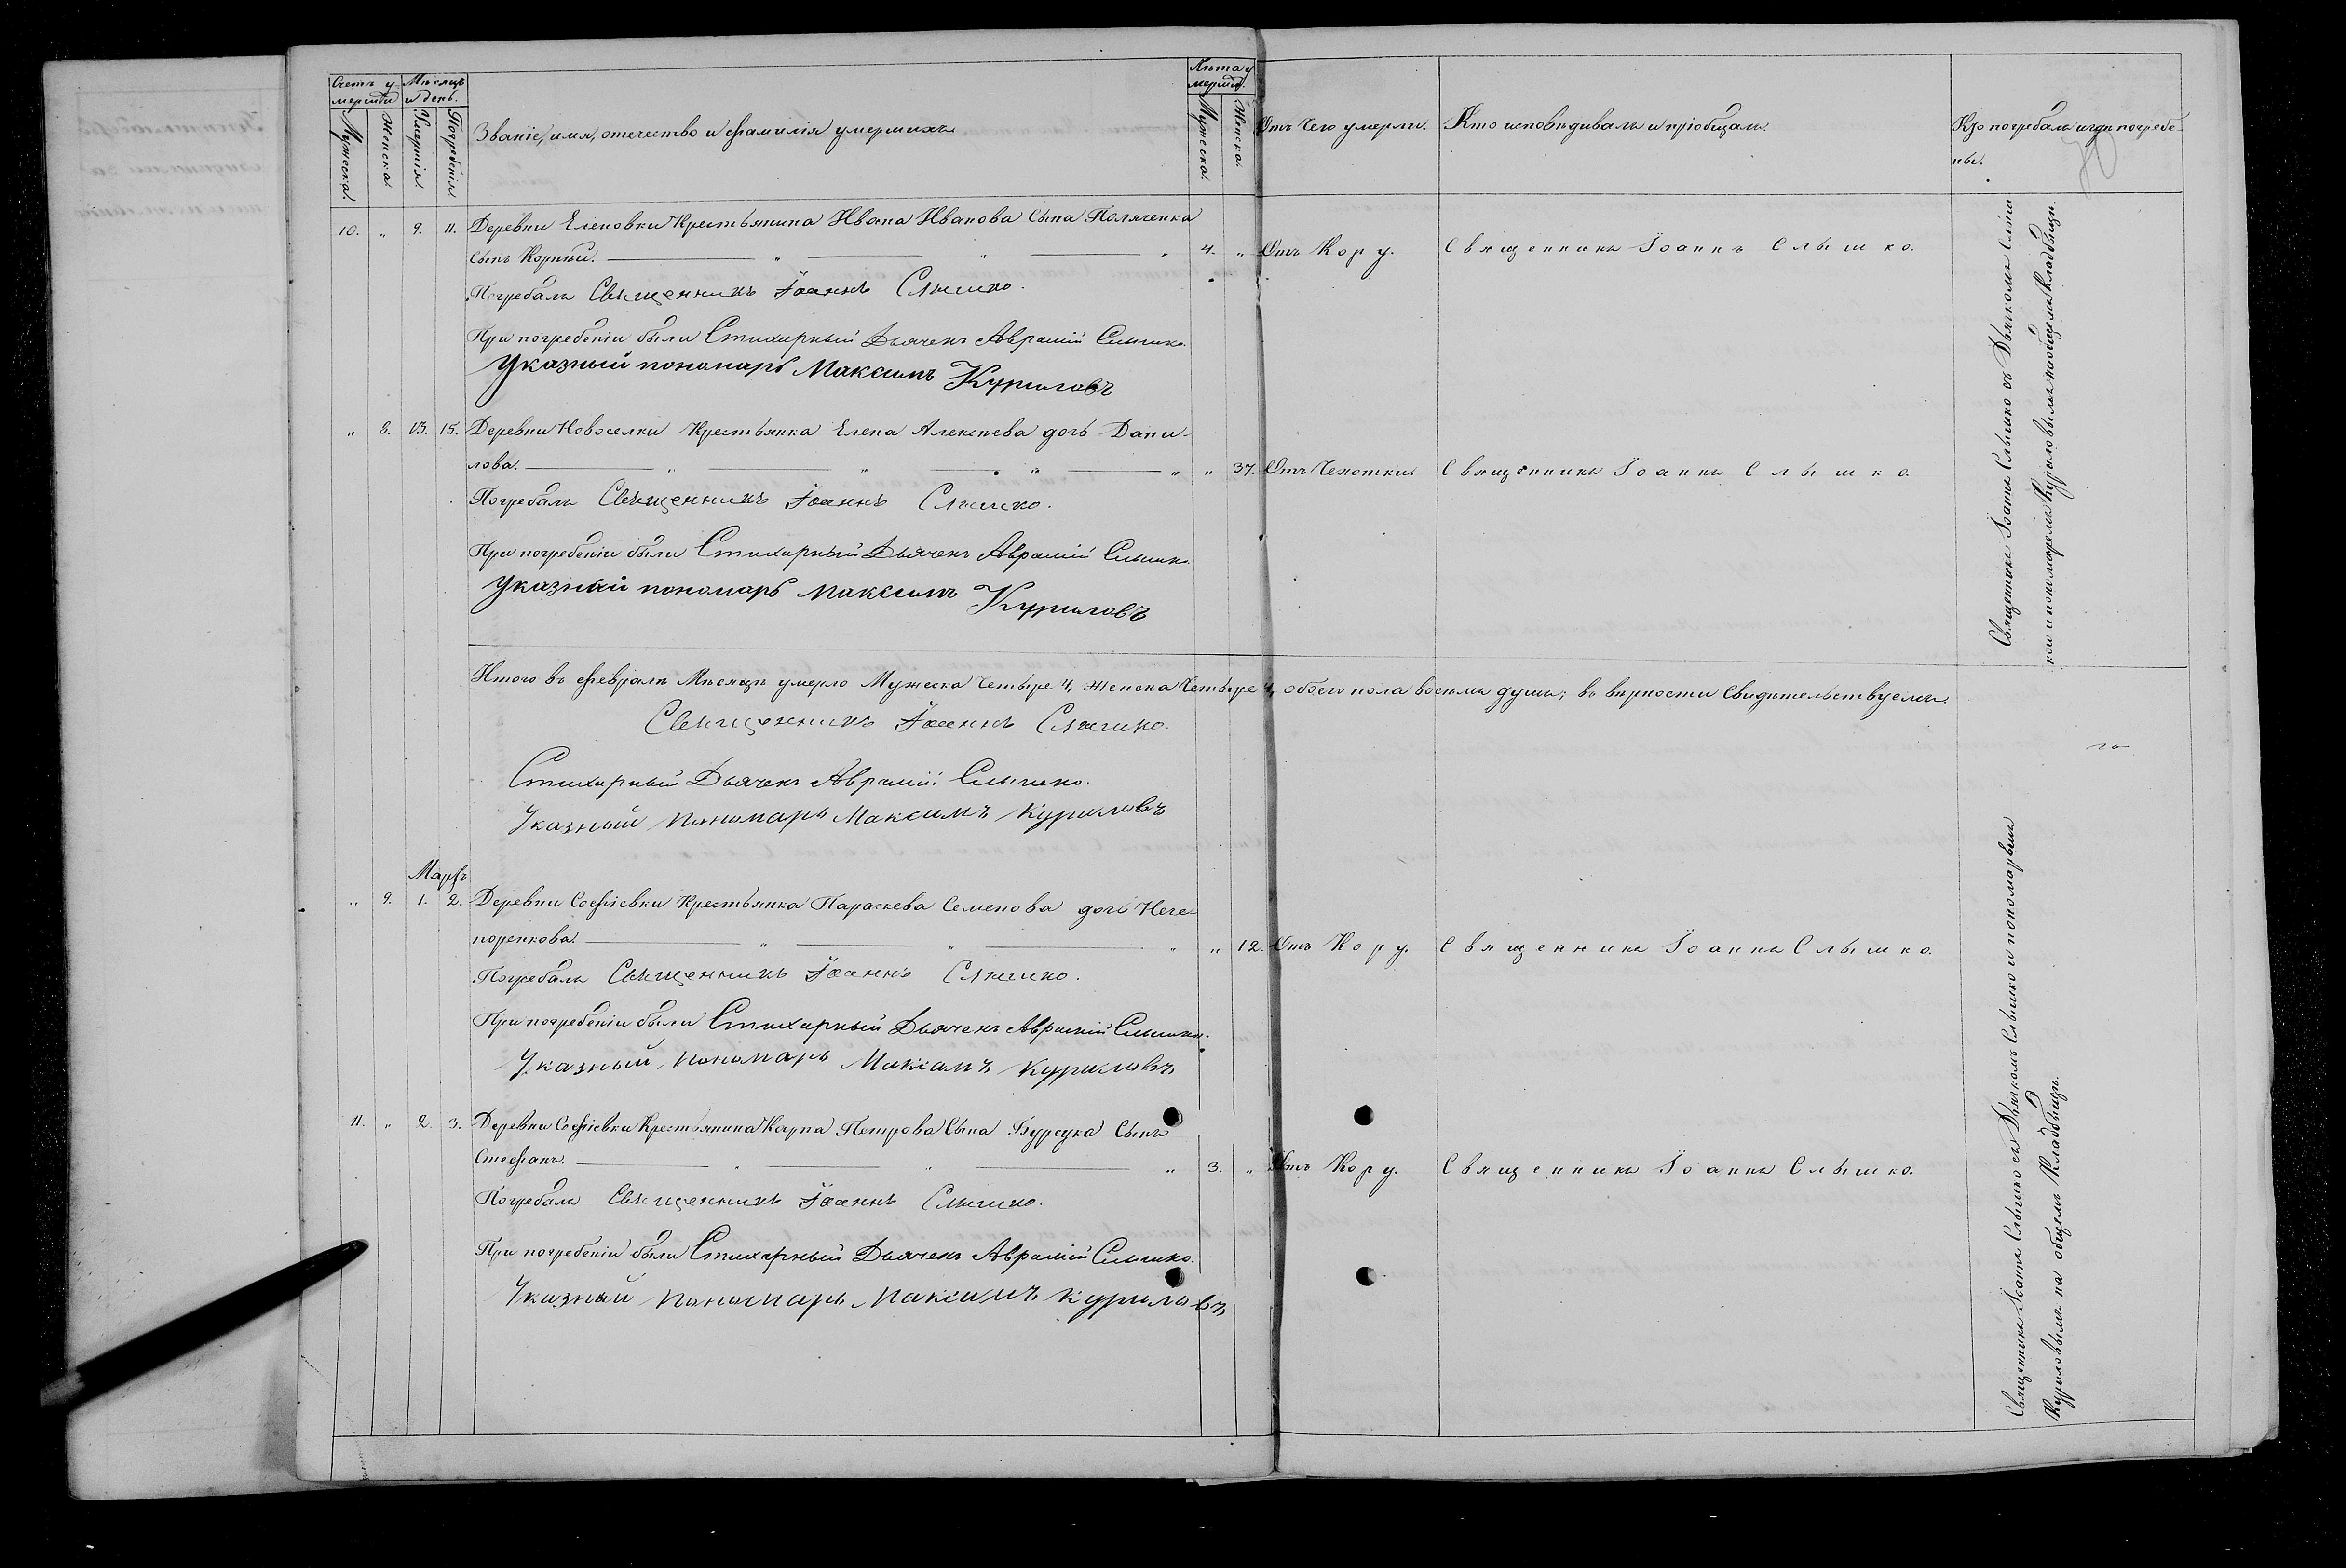 Счетъ у-
мершихъ
Мѣсяцъ
и день.
Мужеска.
Женска.
Умертвія.
Погребенія.
Званіе, имя, отечество и фамилія умершихъ
Лѣта у
мершихъ.
Мужеска.
Женска.
Отъ Чего умерли.
Кто исповѣдивалъ и пріобщалъ.
Кто погребалъ и гдѣ погребе-
ны.
10. " 9. 11. Деревни Еленовки Крестьянина Ивана Иванова Сына Поляченка
сынъ Корнѣй. " " " 4. " Отъ Кору. Священникъ Іоаннъ Слышко.
Погребалъ Священникъ Іоаннъ Слышко.
При погребеніи были Стихарный Дьяченъ Аврамій Слышко.
Указный пономарь Максимъ Куриловъ
" 8. 13. 15. Деревни Новоселки Крестьянка Елена Алексѣева дочь Дани-
лова. " " " " " 37. Отъ Чехотки Священникъ Іоаннъ Слышко.
Погребалъ Священникъ Іоаннъ Слышко.
При погребеніи были Стихарный Дьяченъ Аврамій Слышко.
Указный пономарь Максимъ Куриловъ
Священникъ Іоаннъ Слышко съ Дьячкомъ Слыш
кой и пономаремъ Куриловымъ на общемъ Кладбищѣ.
Итого въ февралѣ Мѣсяцѣ умерло Мужеска Четыре 4, Женска Четыре 4, обоего пола восемь душъ; въ вѣрности свидѣтельствуемъ.
Священникъ Іоаннъ Слышко.
Стихарный Дьяченъ Аврамій Слышко.
Указный Пономарь Максимъ Куриловъ
Мартъ
" 9. 1. 2. Деревни Софіевки Крестьянка Параскева Семенова дочь Нече-
поренкова. " " " " 12. Отъ Кору. Священникъ Іоаннъ Слышко.
Погребалъ Священникъ Іоаннъ Слышко.
При погребеніи были Стихарный Дьяченъ Аврамій Слышко.
Указный Пономарь Максимъ Куриловъ
11. " 2. 3. Деревни Софіевки Крестьянина Карпа Петрова Сына Бурсука Сынъ
Стефанъ. " " " 3. " Отъ Кору. Священникъ Іоаннъ Слышко.
Погребалъ Священникъ Іоаннъ Слышко.
При погребеніи были Стихарный Дьяченъ Аврамій Слышко.
Указный Пономарь Максимъ Куриловъ
Священникъ Іоаннъ Слышко съ Дьячкомъ Слышко и пономаремъ
Куриловымъ на общемъ Кладбищѣ.